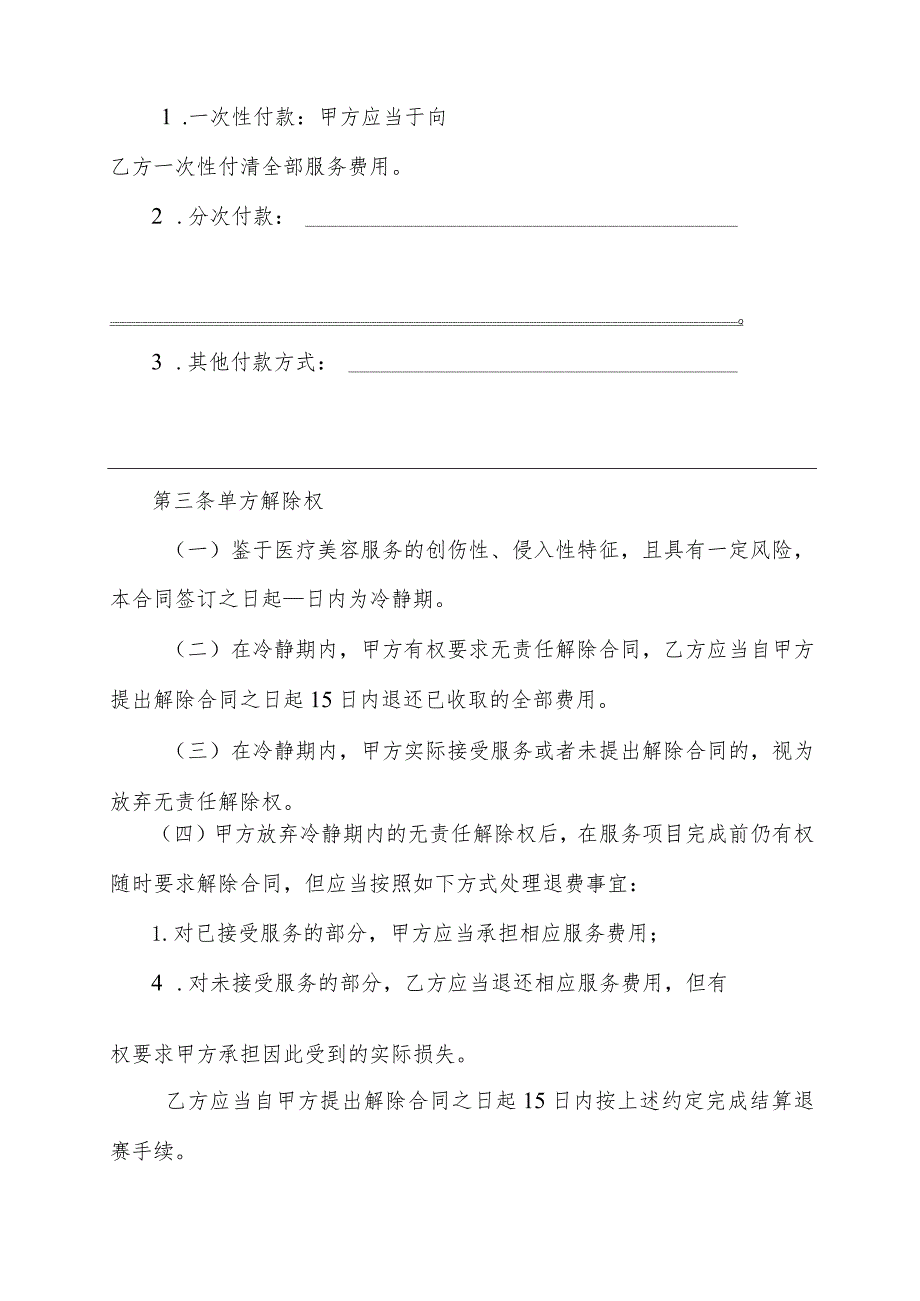 1 .一次性付款：甲方应当于向
乙方一次性付清全部服务费用。
2 .分次付款：
。
3 .其他付款方式：
第三条单方解除权
（一）鉴于医疗美容服务的创伤性、侵入性特征，且具有一定风险，
本合同签订之日起—日内为冷静期。
（二）在冷静期内，甲方有权要求无责任解除合同，乙方应当自甲方
提出解除合同之日起15日内退还已收取的全部费用。
（三）在冷静期内，甲方实际接受服务或者未提出解除合同的，视为
放弃无责任解除权。
（四）甲方放弃冷静期内的无责任解除权后，在服务项目完成前仍有权
随时要求解除合同，但应当按照如下方式处理退费事宜：
1. 对已接受服务的部分，甲方应当承担相应服务费用；
4 .对未接受服务的部分，乙方应当退还相应服务费用，但有
权要求甲方承担因此受到的实际损失。
乙方应当自甲方提出解除合同之日起15日内按上述约定完成结算退
赛手续。